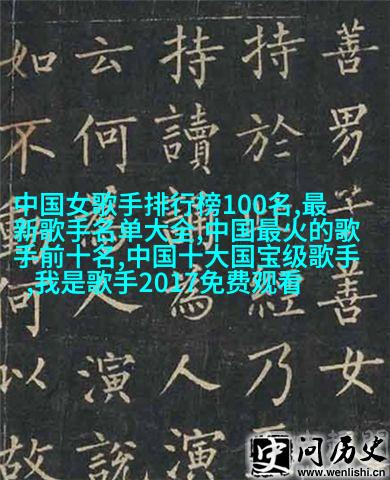 善男子善女
持於經乃
持讀誦為人演
云何為人演說
如不何以故
中国女歌手排行榜100名,最
新歌手名单大全,中国最火的歌
手前十名,中国十大国宝级歌手
,我是歌手2017免费观看
史问历史
www.wenlishi.cn